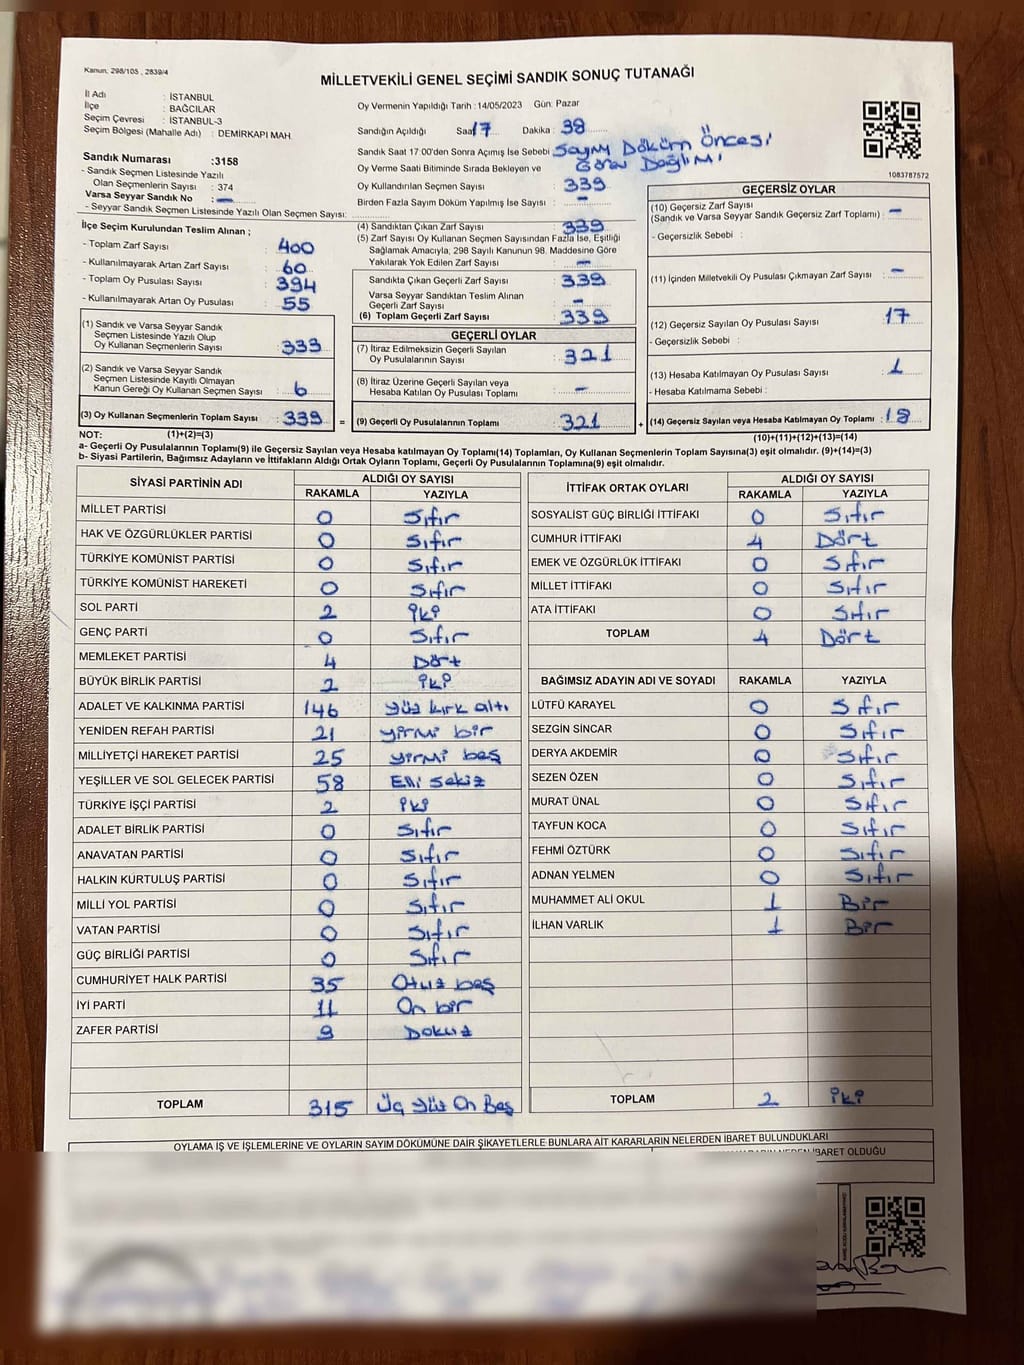 Kanun, 298/105 , 2839/4
MİLLETVEKİLİ GENEL SEÇİMİ SANDIK SONUÇ TUTANAĞI
İl Adı : İSTANBUL
İlçe : BAĞCILAR
Seçim Çevresi : İSTANBUL-3
Seçim Bölgesi (Mahalle Adı) : DEMİRKAPI MAH.
Sandık Numarası :3158
- Sandık Seçmen Listesinde Yazılı
Olan Seçmenlerin Sayısı : 374
Varsa Seyyar Sandık No : -
- Seyyar Sandık Seçmen Listesinde Yazılı Olan Seçmen Sayısı:
Oy Vermenin Yapıldığı Tarih : 14/05/2023 Gün: Pazar
Sandığın Açıldığı Saat 17 Dakika : 38
Sandık Saat 17:00'den Sonra Açımış İse Sebebi : Sayım Döküm Öncesi
Görev Dağılımı
Oy Verme Saati Bitiminde Sırada Bekleyen ve
Oy Kullandırılan Seçmen Sayısı : 339
Birden Fazla Sayım Döküm Yapılmış İse Sayısı : -
1083787572
İlçe Seçim Kurulundan Teslim Alınan ;
- Toplam Zarf Sayısı : 400
- Kullanılmayarak Artan Zarf Sayısı : 60
- Toplam Oy Pusulası Sayısı : 394
- Kullanılmayarak Artan Oy Pusulası : 55
(1) Sandık ve Varsa Seyyar Sandık
Seçmen Listesinde Yazılı Olup
Oy Kullanan Seçmenlerin Sayısı : 333
(2) Sandık ve Varsa Seyyar Sandık
Seçmen Listesinde Kayıtlı Olmayan
Kanun Gereği Oy Kullanan Seçmen Sayısı : 6
(3) Oy Kullanan Seçmenlerin Toplam Sayısı : 339 =
(4) Sandıktan Çıkan Zarf Sayısı : 339
(5) Zarf Sayısı Oy Kullanan Seçmen Sayısından Fazla İse, Eşitliği
Sağlamak Amacıyla, 298 Sayılı Kanunun 98. Maddesine Göre
Yakılarak Yok Edilen Zarf Sayısı : -
Sandıkta Çıkan Geçerli Zarf Sayısı : 339
Varsa Seyyar Sandıktan Teslim Alınan
Geçerli Zarf Sayısı : -
(6) Toplam Geçerli Zarf Sayısı : 339
GEÇERLİ OYLAR
(7) İtiraz Edilmeksizin Geçerli Sayılan
Oy Pusulalarının Sayısı : 321
(8) İtiraz Üzerine Geçerli Sayılan veya
Hesaba Katılan Oy Pusulası Toplamı : -
(9) Geçerli Oy Pusulalarının Toplamı : 321 +
GEÇERSİZ OYLAR
(10) Geçersiz Zarf Sayısı
(Sandık ve Varsa Seyyar Sandık Geçersiz Zarf Toplamı) : -
- Geçersizlik Sebebi :
(11) İçinden Milletvekili Oy Pusulası Çıkmayan Zarf Sayısı : -
(12) Geçersiz Sayılan Oy Pusulası Sayısı : 17
- Geçersizlik Sebebi :
(13) Hesaba Katılmayan Oy Pusulası Sayısı : 1
- Hesaba Katılmama Sebebi :
(14) Geçersiz Sayılan veya Hesaba Katılmayan Oy Toplamı : 18
NOT: (1)+(2)=(3) (10)+(11)+(12)+(13)=(14)
a- Geçerli Oy Pusulalarının Toplamı(9) ile Geçersiz Sayılan veya Hesaba Katılmayan Oy Toplamı(14) Toplamları, Oy Kullanan Seçmenlerin Toplam Sayısına(3) eşit olmalıdır. (9)+(14)=(3)
b- Siyasi Partilerin, Bağımsız Adayların ve İttifakların Aldığı Ortak Oyların Toplamı, Geçerli Oy Pusulalarının Toplamına(9) eşit olmalıdır.
SİYASİ PARTİNİN ADI ALDIĞI OY SAYISI
RAKAMLA YAZIYLA
MİLLET PARTİSİ 0 Sıfır
HAK VE ÖZGÜRLÜKLER PARTİSİ 0 Sıfır
TÜRKİYE KOMÜNİST PARTİSİ 0 Sıfır
TÜRKİYE KOMÜNİST HAREKETİ 0 Sıfır
SOL PARTİ 2 iki
GENÇ PARTİ 0 Sıfır
MEMLEKET PARTİSİ 4 Dört
BÜYÜK BİRLİK PARTİSİ 2 iki
ADALET VE KALKINMA PARTİSİ 146 yüz kırk altı
YENİDEN REFAH PARTİSİ 21 yirmi bir
MİLLİYETÇİ HAREKET PARTİSİ 25 yirmi beş
YEŞİLLER VE SOL GELECEK PARTİSİ 58 Elli sekiz
TÜRKİYE İŞÇİ PARTİSİ 2 iki
ADALET BİRLİK PARTİSİ 0 Sıfır
ANAVATAN PARTİSİ 0 Sıfır
HALKIN KURTULUŞ PARTİSİ 0 Sıfır
MİLLİ YOL PARTİSİ 0 Sıfır
VATAN PARTİSİ 0 Sıfır
GÜÇ BİRLİĞİ PARTİSİ 0 Sıfır
CUMHURİYET HALK PARTİSİ 35 Otuz beş
İYİ PARTİ 11 On bir
ZAFER PARTİSİ 9 Dokuz
TOPLAM 315 Üç Yüz On Beş
İTTİFAK ORTAK OYLARI ALDIĞI OY SAYISI
RAKAMLA YAZIYLA
SOSYALIST GÜÇ BİRLİĞİ İTTİFAKI 0 Sıfır
CUMHUR İTTİFAKI 4 Dört
EMEK VE ÖZGÜRLÜK İTTİFAKI 0 Sıfır
MİLLET İTTİFAKI 0 Sıfır
ATA İTTİFAKI 0 Sıfır
TOPLAM 4 Dört
BAĞIMSIZ ADAYIN ADI VE SOYADI RAKAMLA YAZIYLA
LÜTFÜ KARAYEL 0 Sıfır
SEZGİN SİNCAR 0 Sıfır
DERYA AKDEMİR 0 Sıfır
SEZEN ÖZEN 0 Sıfır
MURAT ÜNAL 0 Sıfır
TAYFUN KOCA 0 Sıfır
FEHMİ ÖZTÜRK 0 Sıfır
ADNAN YELMEN 0 Sıfır
MUHAMMET ALİ OKUL 1 Bir
İLHAN VARLIK 1 Bir
TOPLAM 2 iki
OYLAMA İŞ VE İŞLEMLERİNE VE OYLARIN SAYIM DÖKÜMÜNE DAİR ŞİKAYETLERLE BUNLARA AİT KARARLARIN NELERDEN İBARET BULUNDUKLARI
İBARET OLDUĞU